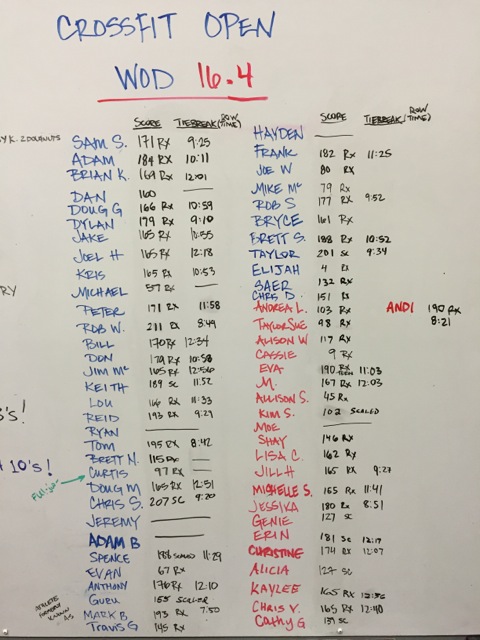 CROSSFIT OPEN
WOD 16.4
SCORE TIEBREAK (ROW TIME)
SAM S. 171 RX 9:25
ADAM 184 RX 10:11
BRIAN K. 169 RX 12:01
DAN 160
DOUG G 166 RX 10:59
DYLAN 179 RX 9:10
JAKE 165 RX
JOEL H 165 RX 12:18
KRIS 165 RX 10:53
MICHAEL 57 RX
PETER 171 RX 11:58
ROB W. 211 RX 8:49
BILL 170 RX 12:34
DON 179 RX 10:58
JIM Mc 165 RX 12:56
KEITH 189 SC 11:52
LOU 166 RX 11:33
REID 193 RX 9:29
RYAN
TOM 195 RX 8:42
BRETT N. 115 RX
CURTIS 97 RX
DOUG M 165 RX 12:51
CHRIS S. 207 SC 9:20
JEREMY
ADAM B
SPENCE SCALED 11:29
EVAN 67 RX
ANTHONY 176 RX 12:10
GURU 155 SCALED
ATHLETE FORMERLY KNOWN AS
MARK B 193 RX 7:50
TRAVIS G 145 RX
SCORE TIEBREAK (ROW TIME)
HAYDEN
FRANK 182 RX 11:25
JOE W 80 RX
MIKE Mc 79 RX
ROB S 177 RX 9:52
BRYCE 161 RX
BRETT S. 188 RX 10:52
TAYLOR 201 SC 9:34
ELIJAH 4 RX
SAER 132 RX
CHRIS D. 151 RX
ANDREA L. 103 RX
TAYLOR SUE 98 RX
ALISON W 117 RX
CASSIE 9 RX
EVA 190 RX TEEN 11:03
M. 167 RX 12:03
ALLISON S. 45 RX
KIM S. 102 SCALED
MOE
SHAY 146 RX
LISA C. 162 RX
JILL H 165 RX 9:27
MICHELLE S. 165 RX 11:41
JESSIKA 180 RX 8:51
GENIE 127 SC
ERIN 181 SC 12:17
CHRISTINE 174 RX 12:07
ALICIA 127 SC
KAYLEE 165 RX 12:36
CHRIS V. 165 RX 12:40
CATHY G 139 SC
ANDI 190 RX
8:21
Y K. 2 DOUGHNUTS
RY
'S!
10's!